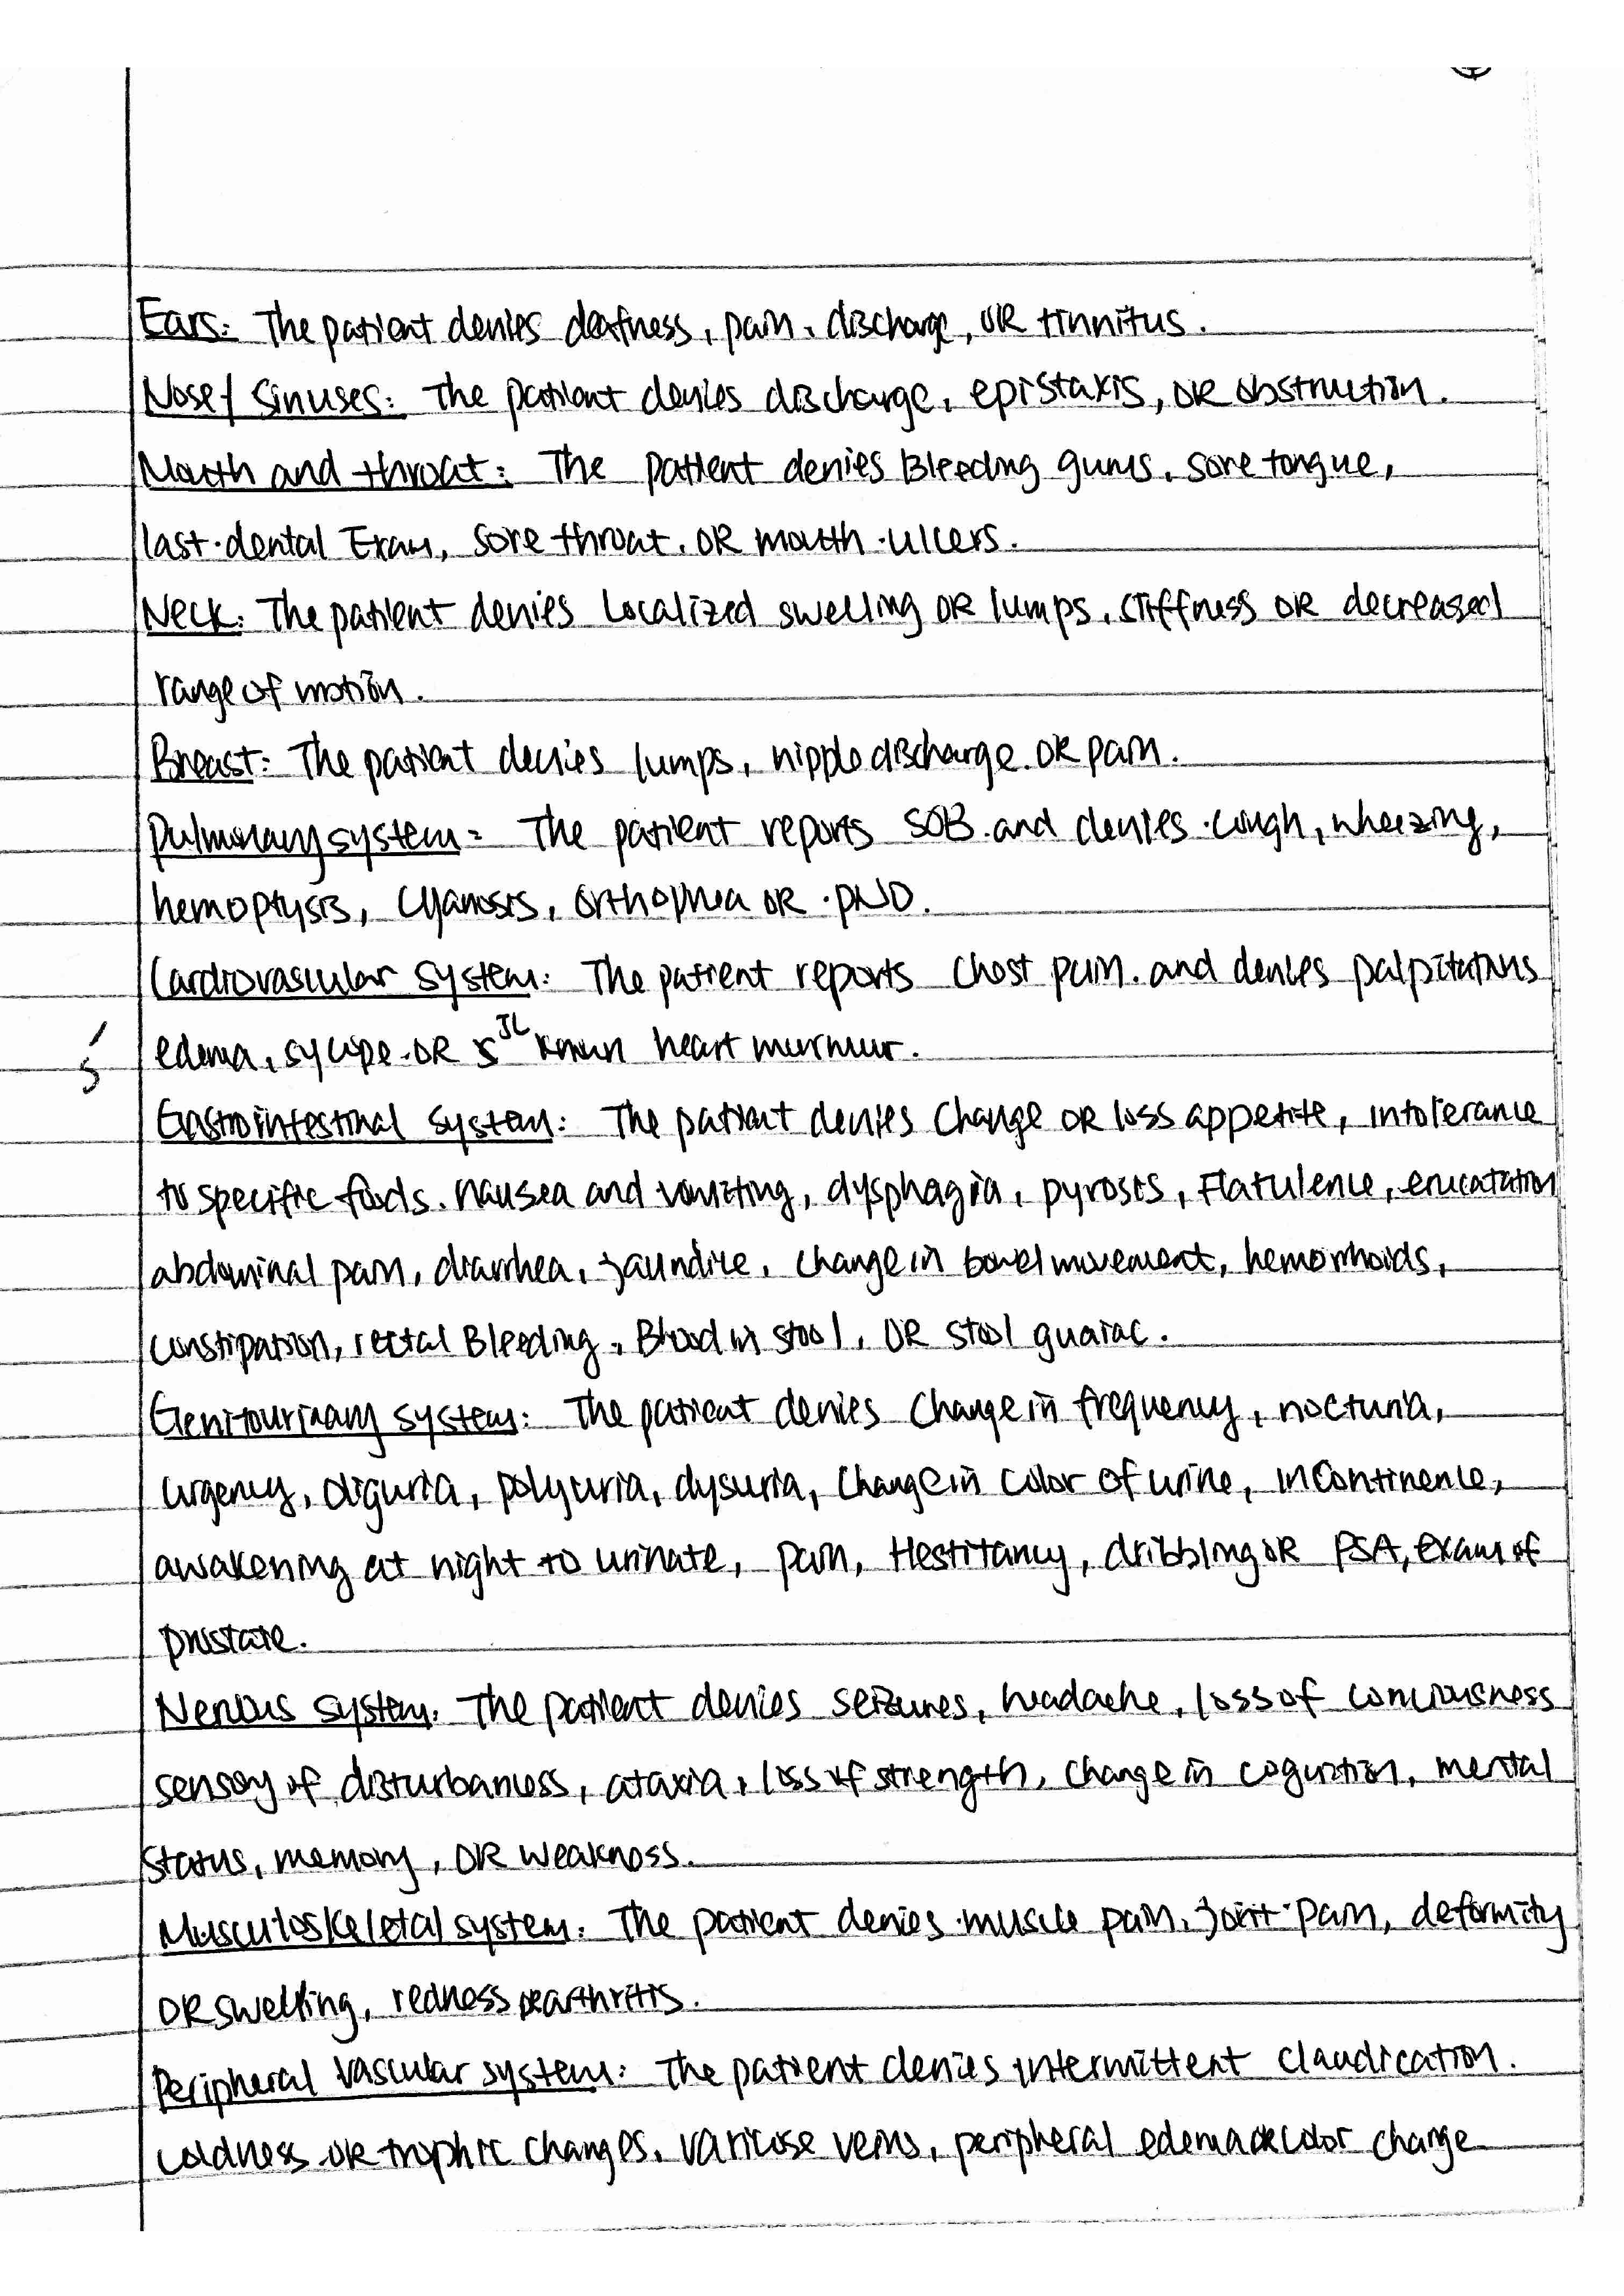 Ears: The patient denies deafness, pain, discharge, OR tinnitus.
Nose/ Sinuses: The patient denies discharge, epistaxis, OR obstruction.
Mouth and throat: The patient denies Bleeding gums, sore tongue,
last dental Exam, sore throat, OR mouth ulcers.
Neck: The patient denies Localized swelling OR lumps, stiffness OR decreased
range of motion.
Breast: The patient denies lumps, nipple discharge OR pain.
Pulmonary system: The patient reports SOB and denies cough, wheezing,
hemoptysis, Cyanosis, orthopnea OR PND.
Cardiovascular system: The patient reports Chest pain and denies palpitations
edema, sycope OR JL known heart murmur.
Gastrointestinal system: The patient denies Change OR loss appetite, intolerance
to specific foods. nausea and vomiting, dysphagia, pyrosis, Flatulence, erucatation
abdominal pain, diarrhea, jaundice, change in bowel movement, hemorrhoids,
constipation, rectal Bleeding, Blood in stool, OR stool guaiac.
Genitourinary system: The patient denies Change in frequency, nocturia,
urgency, oliguria, polyuria, dysuria, Change in color of urine, incontinence,
awakening at night to urinate, pain, Hestitancy, dribbling OR PSA, exam of
prostate.
Nervous system: The patient denies seizures, headache, loss of conciousness
sensory of disturbancess, ataxia, loss of strength, change in cognition, mental
status, memory, OR weakness.
Musculoskeletal system: The patient denies muscle pain, joint pain, deformity
OR swelling, redness OR arthritis.
Peripheral vascular system: The patient denies intermittent claudication.
coldness OR trophic changes, varicose veins, peripheral edema OR color change